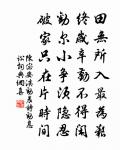 田無所入最為艱
終歲辛勤不得閑
勸尔小爭須隱忍
破家只在片時間
陳宓安溪勸農詩勸息
訟詞典網書